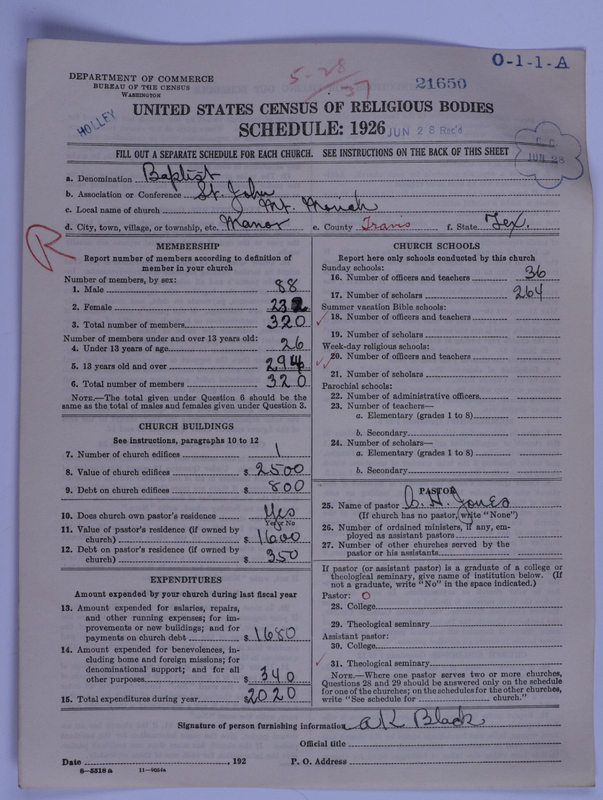 O-1-1-A
DEPARTMENT OF COMMERCE
BUREAU OF THE CENSUS
WASHINGTON
5-28
37
21650
HOLLEY
UNITED STATES CENSUS OF RELIGIOUS BODIES
SCHEDULE: 1926
JUN 28 Rec'd
JUN 28
FILL OUT A SEPARATE SCHEDULE FOR EACH CHURCH. SEE INSTRUCTIONS ON THE BACK OF THIS SHEET
a. Denomination Baptist
b. Association or Conference St. John
c. Local name of church Mt. Moriah
d. City, town, village, or township, etc. Manor e. County Travis f. State Tex.
R
MEMBERSHIP
Report number of members according to definition of
member in your church
Number of members, by sex:
1. Male 88
2. Female 232
3. Total number of members 320
Number of members under and over 13 years old:
4. Under 13 years of age 26
5. 13 years old and over 294
6. Total number of members 320
NOTE.—The total given under Question 6 should be the
same as the total of males and females given under Question 3.
CHURCH BUILDINGS
See instructions, paragraphs 10 to 12
7. Number of church edifices 1
8. Value of church edifices $ 2500
9. Debt on church edifices $ 800
10. Does church own pastor's residence Yes
Yes or No
11. Value of pastor's residence (if owned by
church) $ 1600
12. Debt on pastor's residence (if owned by
church) $ 350
EXPENDITURES
Amount expended by your church during last fiscal year
13. Amount expended for salaries, repairs,
and other running expenses; for im-
provements or new buildings; and for
payments on church debt $ 1680
14. Amount expended for benevolences, in-
cluding home and foreign missions; for
denominational support; and for all
other purposes $ 340
15. Total expenditures during year $ 2020
CHURCH SCHOOLS
Report here only schools conducted by this church
Sunday schools:
16. Number of officers and teachers 36
17. Number of scholars 264
Summer vacation Bible schools:
18. Number of officers and teachers
19. Number of scholars
Week-day religious schools:
20. Number of officers and teachers
21. Number of scholars
Parochial schools:
22. Number of administrative officers
23. Number of teachers—
a. Elementary (grades 1 to 8)
b. Secondary
24. Number of scholars—
a. Elementary (grades 1 to 8)
b. Secondary
PASTOR
25. Name of pastor C. H. Jones
(If church has no pastor, write "None")
26. Number of ordained ministers, if any, em-
ployed as assistant pastors
27. Number of other churches served by the
pastor or his assistants
If pastor (or assistant pastor) is a graduate of a college or
theological seminary, give name of institution below. (If
not a graduate, write "No" in the space indicated.)
Pastor: O
28. College
29. Theological seminary
Assistant pastor:
30. College
31. Theological seminary
NOTE.—Where one pastor serves two or more churches,
Questions 28 and 29 should be answered only on the schedule
for one of the churches; on the schedules for the other churches,
write "See schedule for church."
Signature of person furnishing information AK Black
Official title
Date , 192 P. O. Address
8-5518a 11-9354a